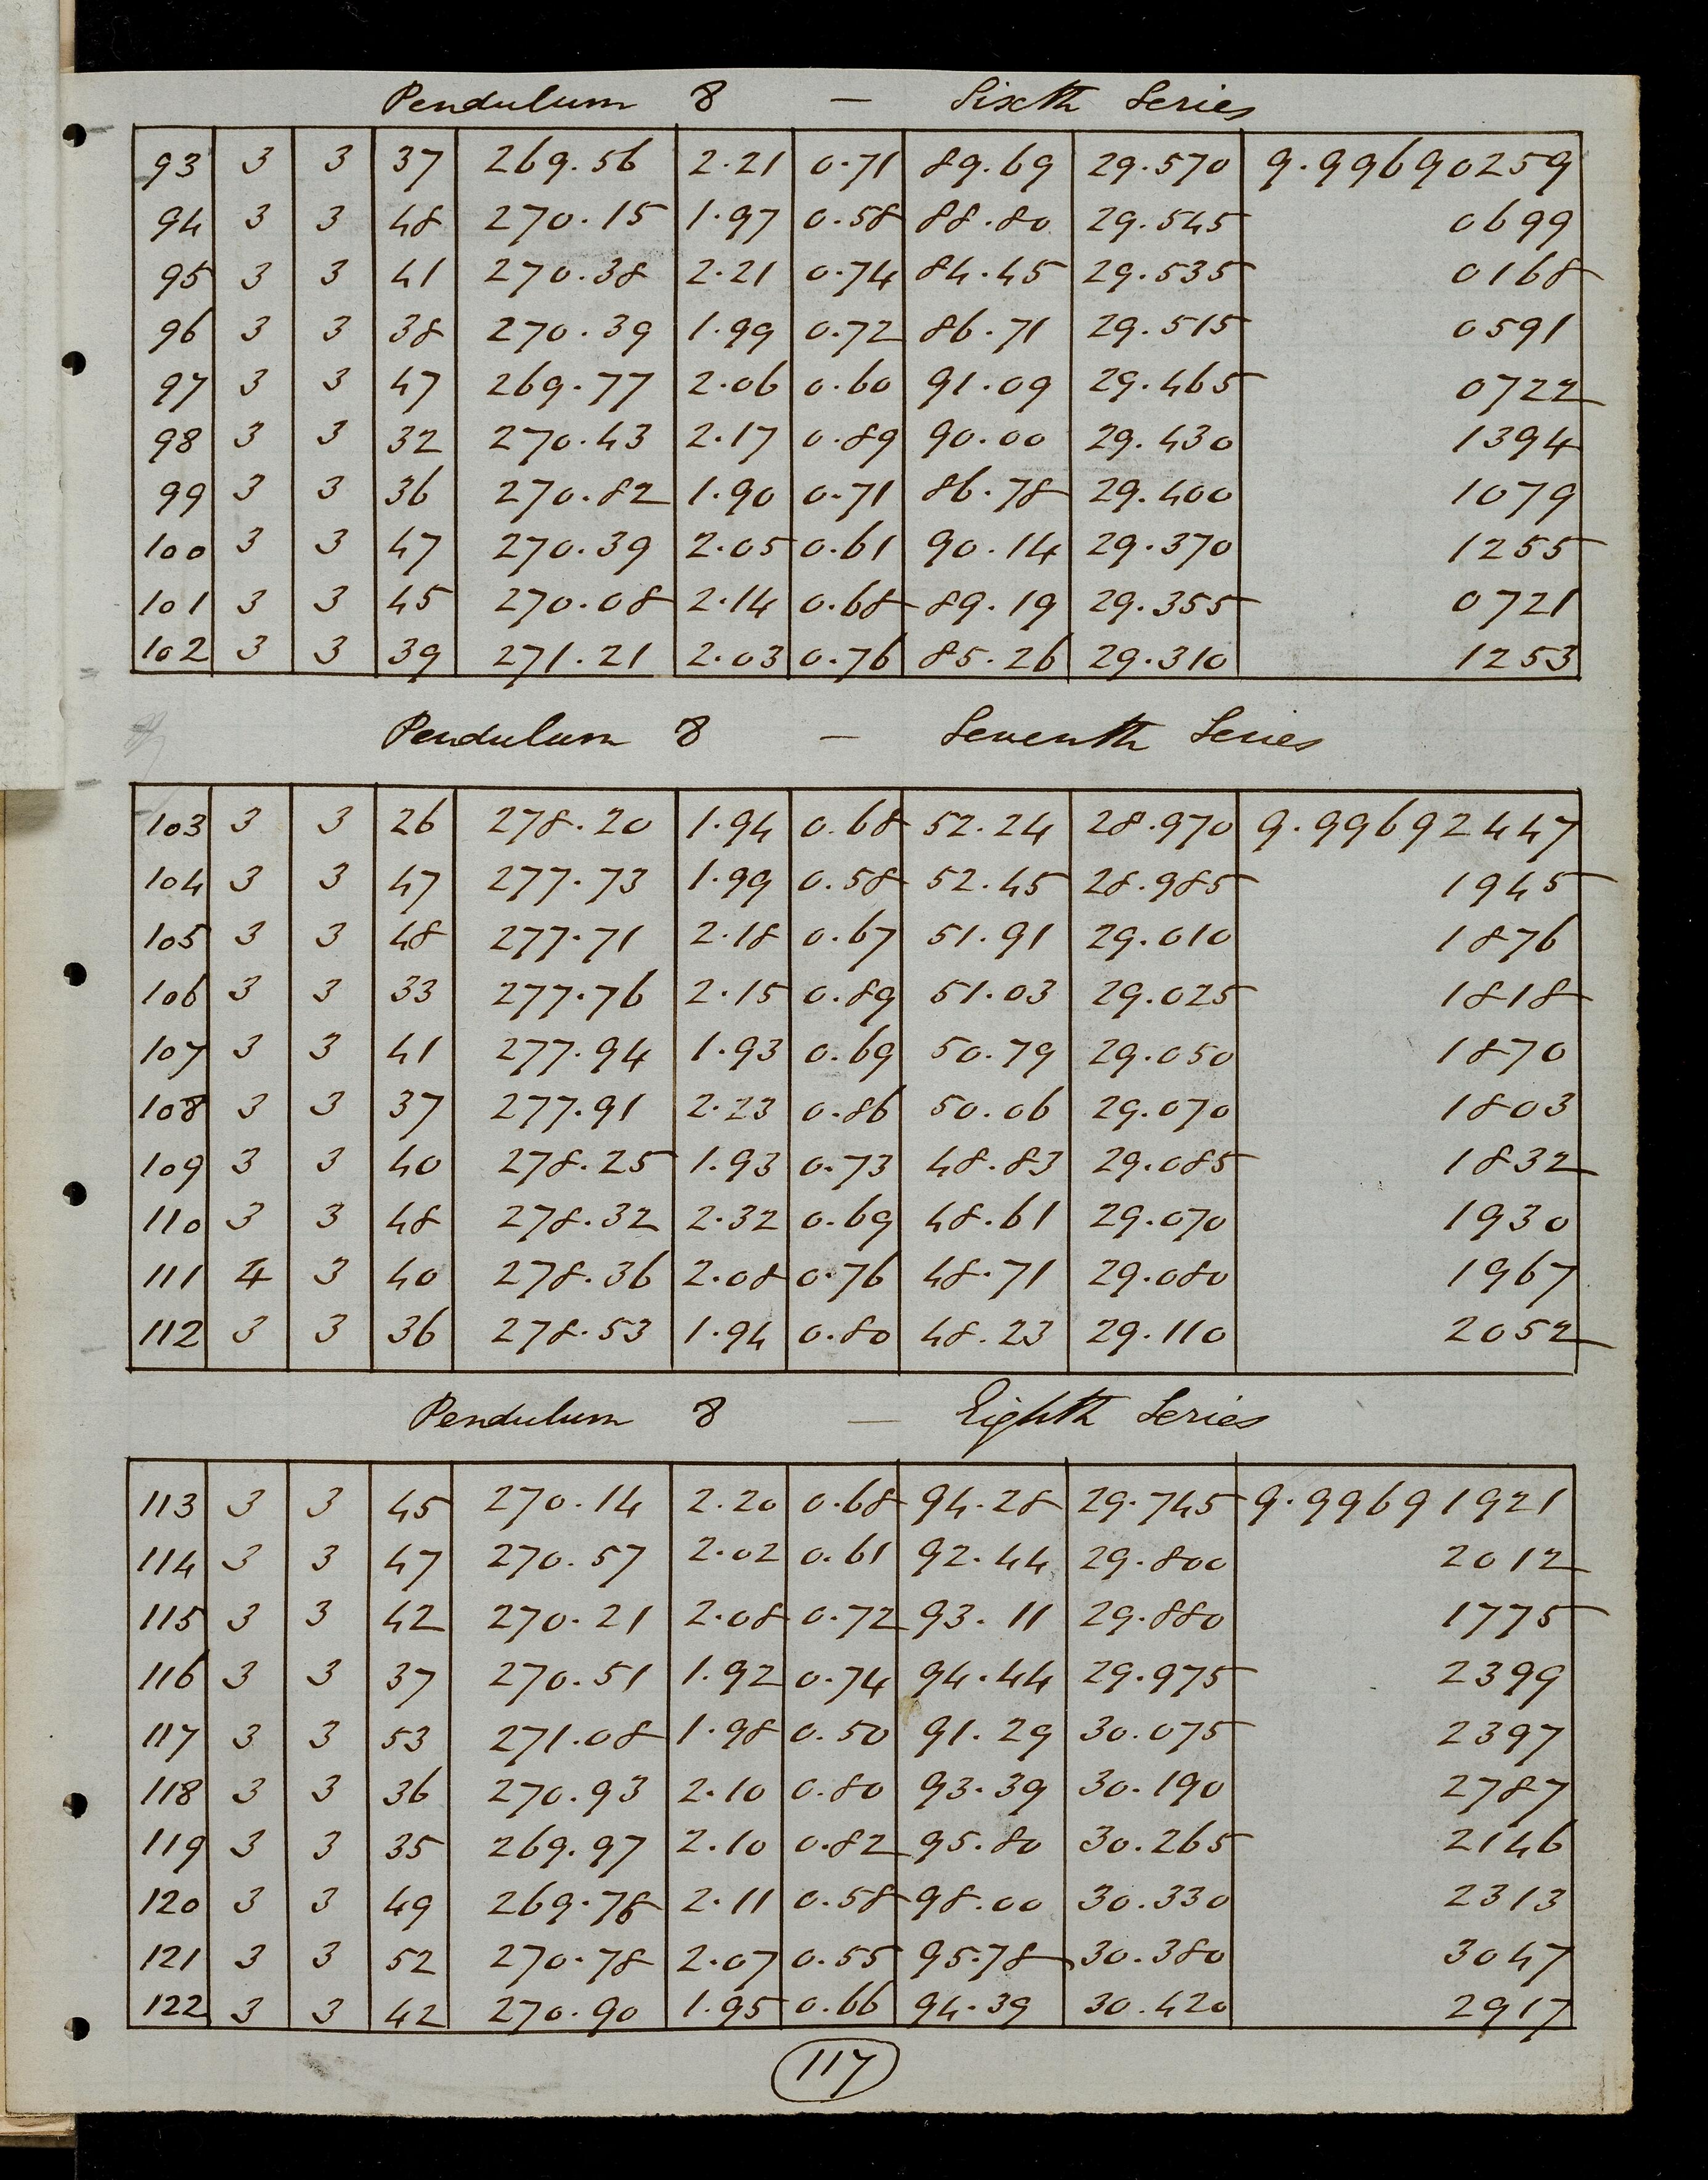 Pendulum 8 — Sixth Series
93 3 3 37 269.56 2.21 0.71 89.69 29.570 9.996690259
94 3 3 48 270.15 1.97 0.58 88.80 29.545 0699
95 3 3 41 270.38 2.21 0.74 84.45 29.535 0168
96 3 3 38 270.39 1.99 0.72 86.71 29.515 0591
97 3 3 47 269.77 2.06 0.60 91.09 29.465 0722
98 3 3 32 270.43 2.17 0.89 90.00 29.430 1394
99 3 3 36 270.82 1.90 0.71 86.78 29.400 1079
100 3 3 47 270.39 2.05 0.61 90.14 29.370 1255
101 3 3 45 270.08 2.14 0.68 89.19 29.355 0721
102 3 3 39 271.21 2.03 0.76 85.26 29.310 1253
Pendulum 8 — Seventh Series
103 3 3 26 278.20 1.94 0.68 52.24 28.970 9.996692447
104 3 3 47 277.73 1.99 0.58 52.45 28.985 1945
105 3 3 48 277.71 2.18 0.67 51.91 29.010 1876
106 3 3 33 277.76 2.15 0.89 51.03 29.025 1818
107 3 3 41 277.94 1.93 0.69 50.79 29.050 1870
108 3 3 37 277.91 2.23 0.86 50.06 29.070 1803
109 3 3 40 278.25 1.93 0.73 48.83 29.085 1832
110 3 3 48 278.32 2.32 0.69 48.61 29.070 1930
111 4 3 40 278.36 2.08 0.76 48.71 29.080 1967
112 3 3 36 278.53 1.94 0.80 48.23 29.110 2052
Pendulum 8 — Eighth Series
113 3 3 45 270.14 2.20 0.68 94.28 29.745 9.996691921
114 3 3 47 270.57 2.02 0.61 92.44 29.800 2012
115 3 3 42 270.21 2.08 0.72 93.11 29.880 1775
116 3 3 37 270.51 1.92 0.74 94.44 29.975 2399
117 3 3 53 271.08 1.98 0.50 91.29 30.075 2397
118 3 3 36 270.93 2.10 0.80 93.39 30.190 2787
119 3 3 35 269.97 2.10 0.82 95.80 30.265 2146
120 3 3 49 269.78 2.11 0.58 98.00 30.330 2313
121 3 3 52 270.78 2.07 0.55 95.78 30.380 3047
122 3 3 42 270.90 1.95 0.66 94.39 30.420 2917
117